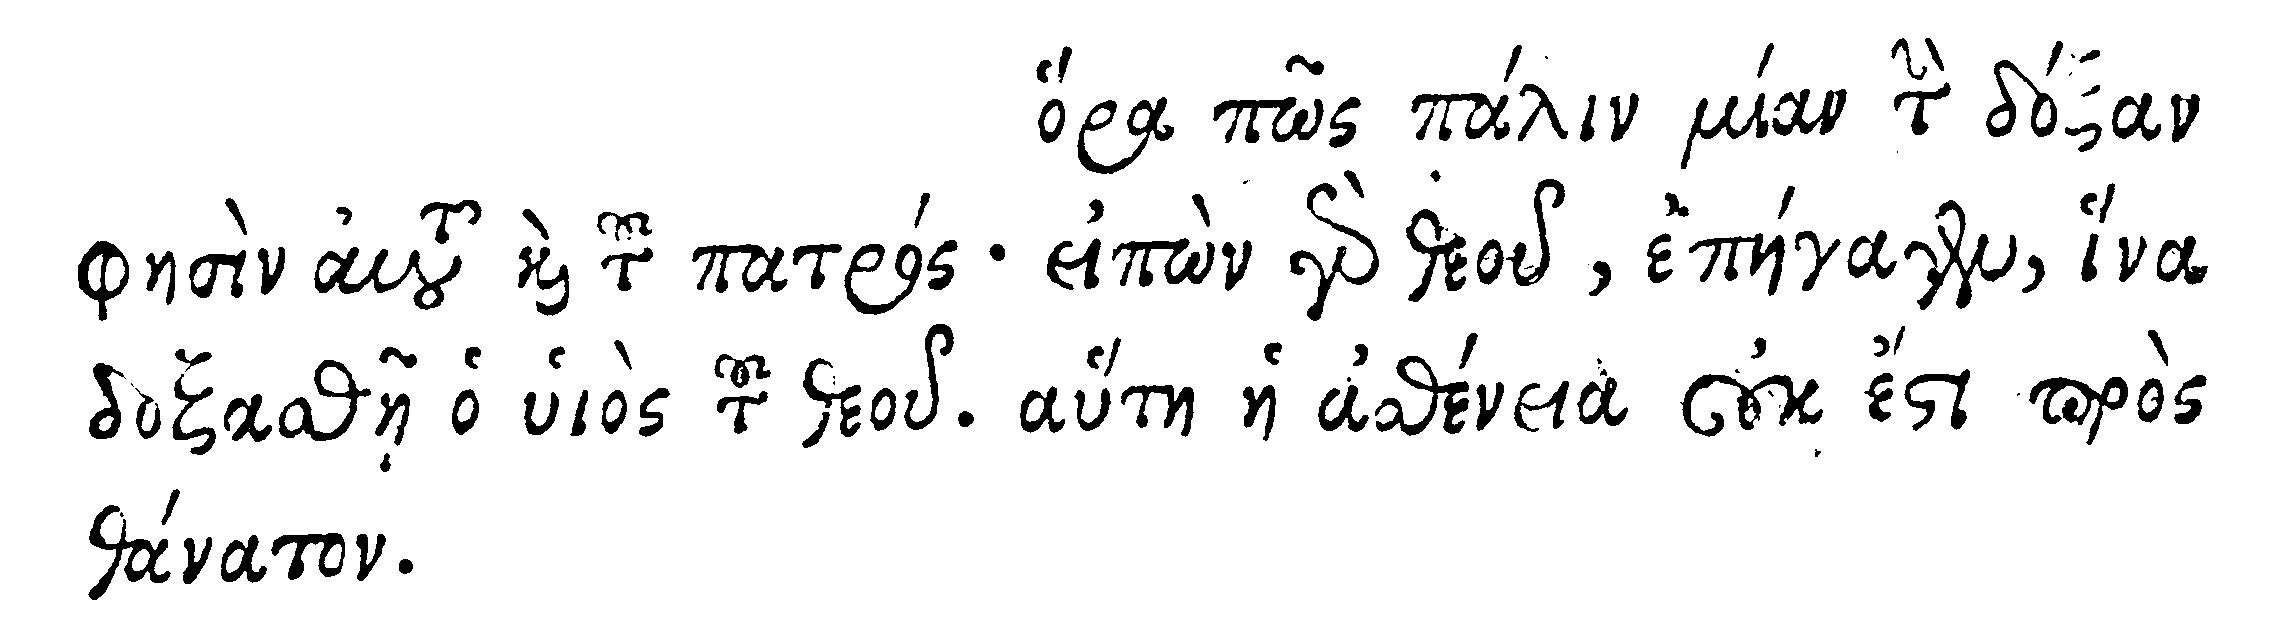 ὅρα πῶς πάλιν μίαν τὴν δόξαν
φησὶν αὐτοῦ καὶ τοῦ πατρός· εἰπὼν γὰρ θεοῦ, ἐπήγαγεν, ἵνα
δοξασθῇ ὁ υἱὸς τοῦ θεοῦ. αὕτη ἡ ἀσθένεια οὐκ ἔστι πρὸς
θάνατον.